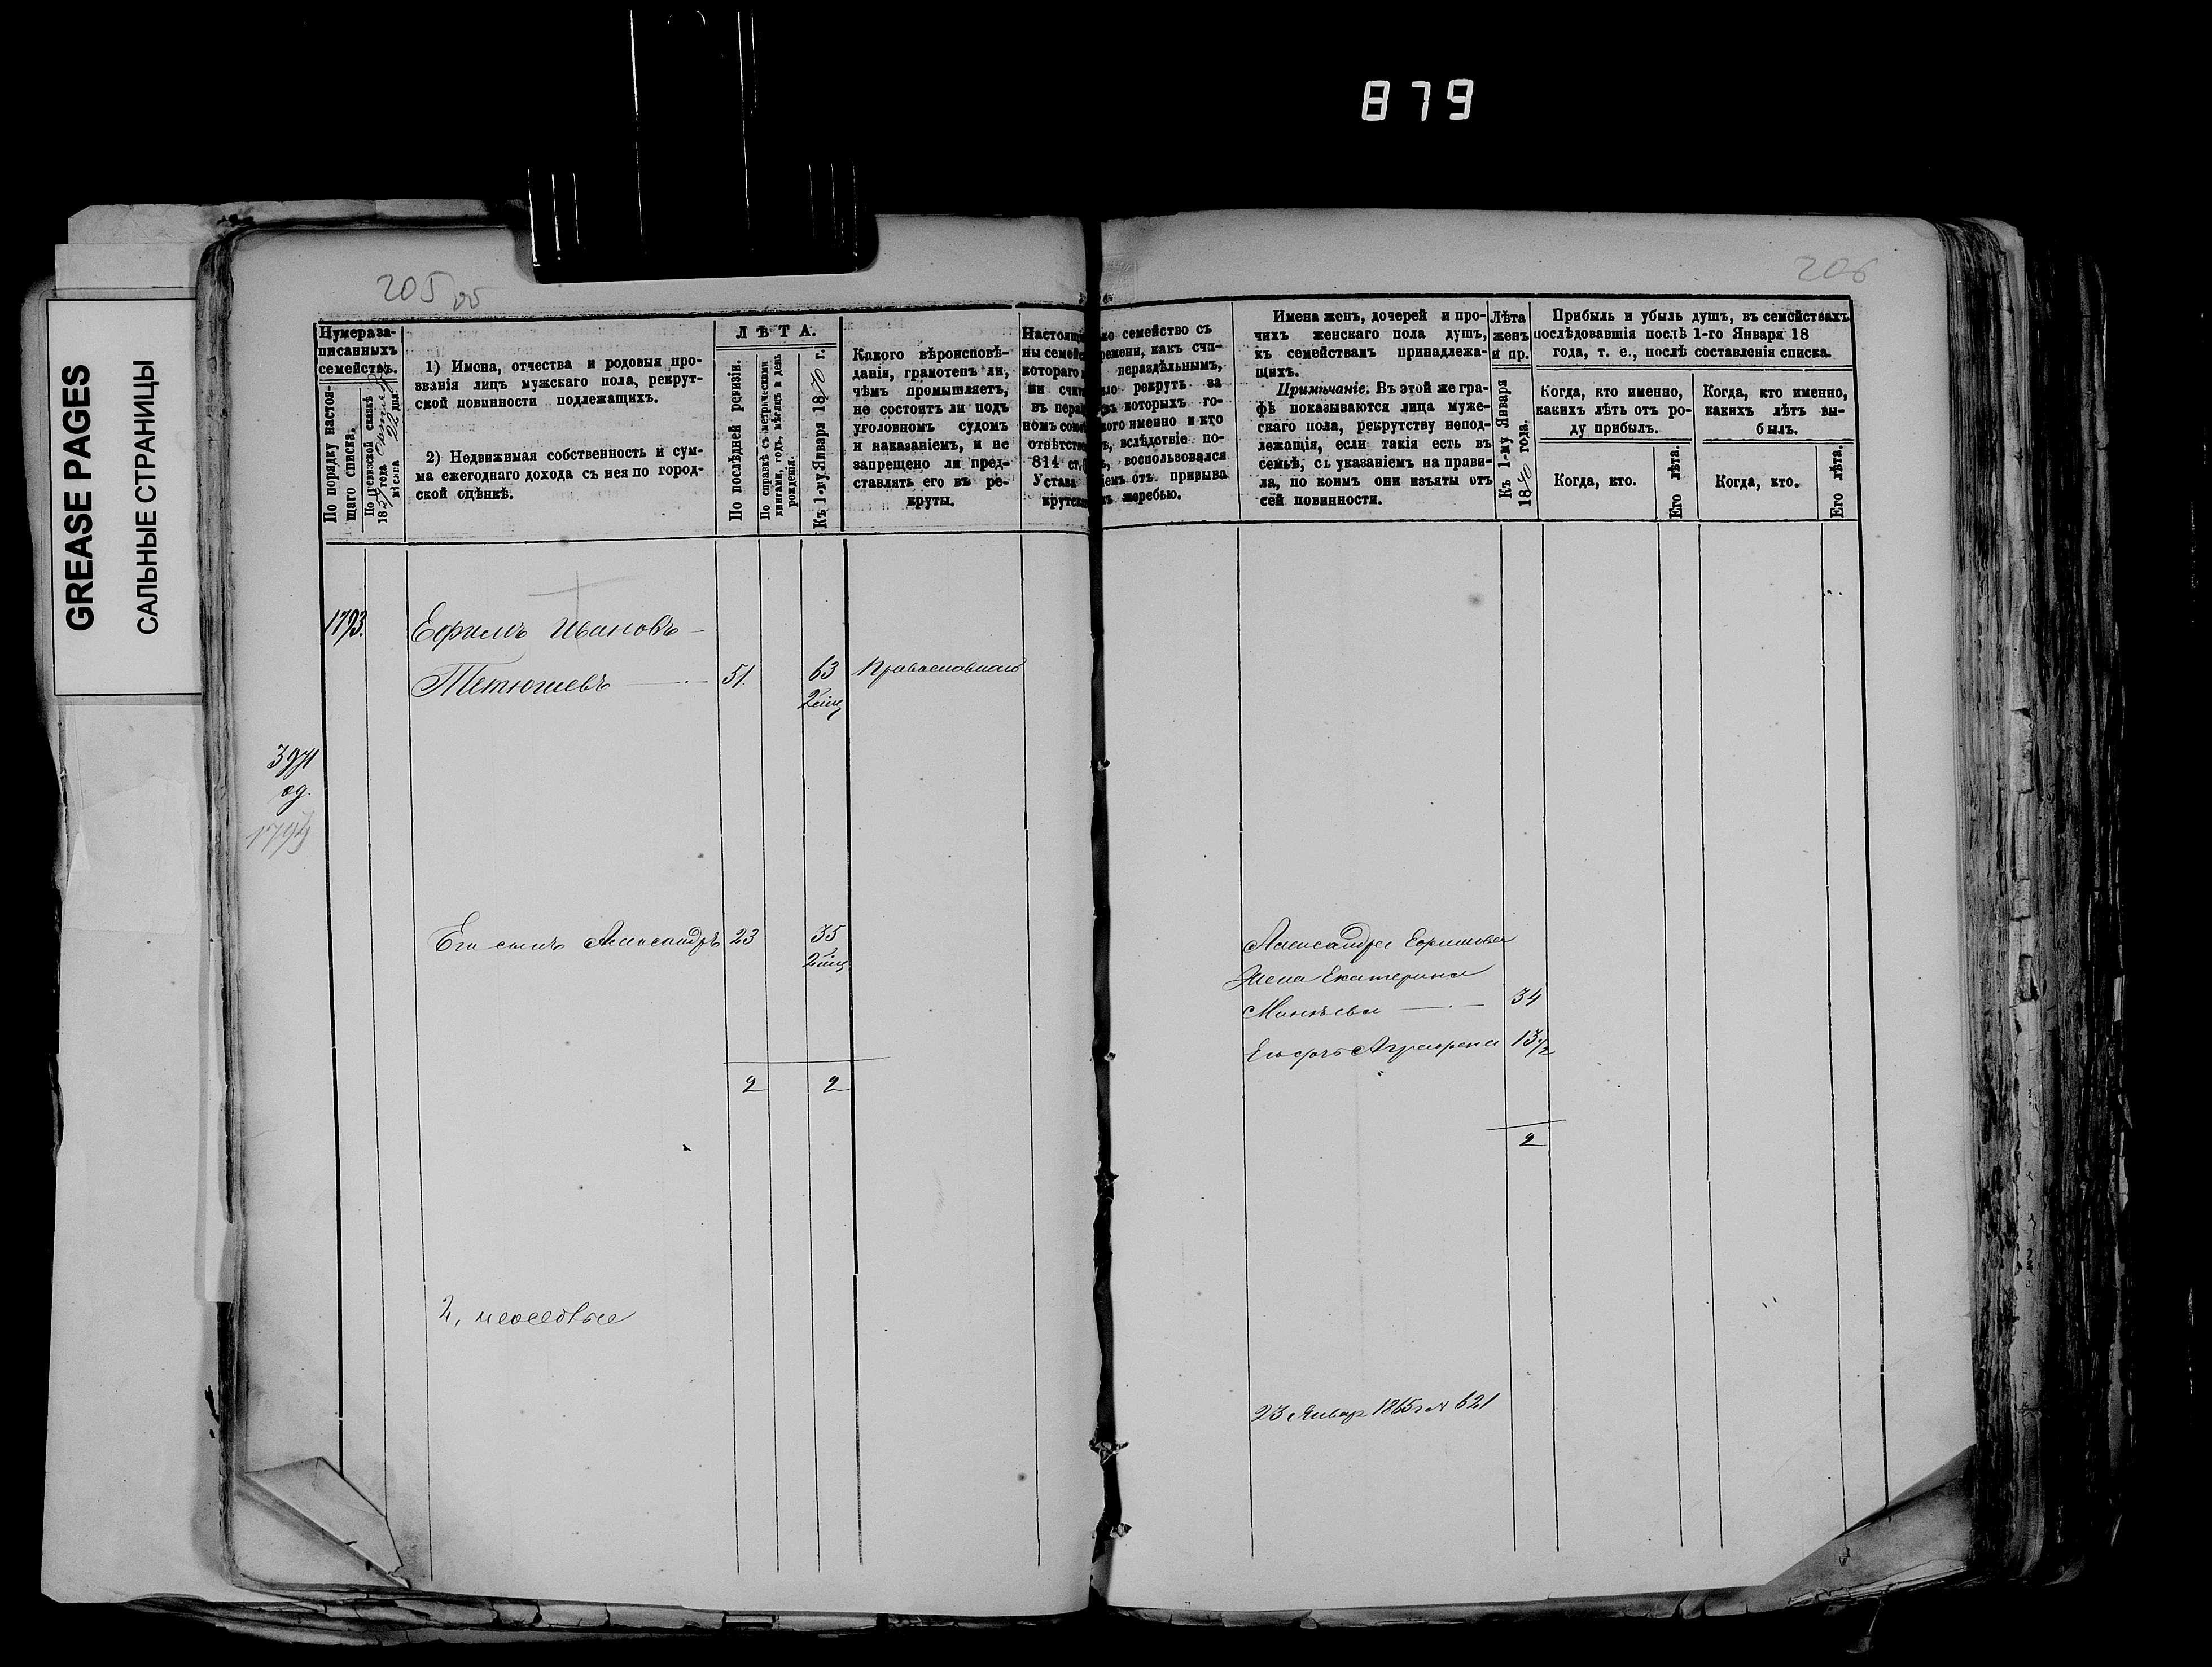 879
GREASE PAGES
САЛЬНЫЕ СТРАНИЦЫ
205 об
Нумера за-
писанныхъ
семействъ.
По порядку настоя-
щаго списка.
По ревизской сказкѣ
18 года
мѣсяца дня.
1) Имена, отчества и родовыя про-
званія лицъ мужскаго пола, рекрут-
ской повинности подлежащихъ.
2) Недвижимая собственность и сум-
ма ежегоднаго дохода съ нея по город-
ской оцѣнкѣ.
ЛѢТА.
По послѣдней ревизіи.
По справкѣ съ метрическими
книгами, годъ, мѣсяцъ и день
рожденія.
Къ 1-му Января 1870 г.
Какого вѣроисповѣ-
данія, грамотенъ ли,
чѣмъ промышляетъ,
не состоитъ ли подъ
уголовномъ судомъ
и наказаніемъ, и не
запрещено ли пред-
ставлять его въ ре-
круты.
Настоящ
ны семейс
котораго
ни счит
въ нераз
номъ
отвѣтстве
814 ст.
Устава
крутск
1793.
Ефимъ Ивановъ —
Тетюшевъ — 51. 63 Православнаго
3971
од.
Его сынъ Александръ 23 35
2 2
2, неосѣдлые
206
семейство съ
ремени, какъ счи-
нераздѣльнымъ,
рекрутъ за
которыхъ го-
кого именно и кто
вслѣдствіе по-
воспользовался
емъ отъ призыва
жеребью.
Имена женъ, дочерей и про-
чихъ женскаго пола душъ,
къ семействамъ принадлежа-
щихъ.
Примѣчаніе. Въ этой же гра-
фѣ показываются лица муже-
скаго пола, рекрутству непод-
лежащія, если такія есть въ
семьѣ, съ указаніемъ на прави-
ла, по коимъ они изъяты отъ
сей повинности.
Лѣта
женъ
и пр.
Къ 1-му Января
1870 года.
Прибыль и убыль душъ, въ семействахъ
послѣдовавшія послѣ 1-го Января 18
года, т. е., послѣ составленія списка.
Когда, кто именно,
какихъ лѣтъ отъ ро-
ду прибылъ.
Когда, кто.
Его лѣта.
Когда, кто именно,
какихъ лѣтъ вы-
былъ.
Когда, кто.
Его лѣта.
Александра Ефимова
Жена Екатерина
— 34
Его дочь Аграфена 13 1/2
2
23 Январ 1865 г № 621